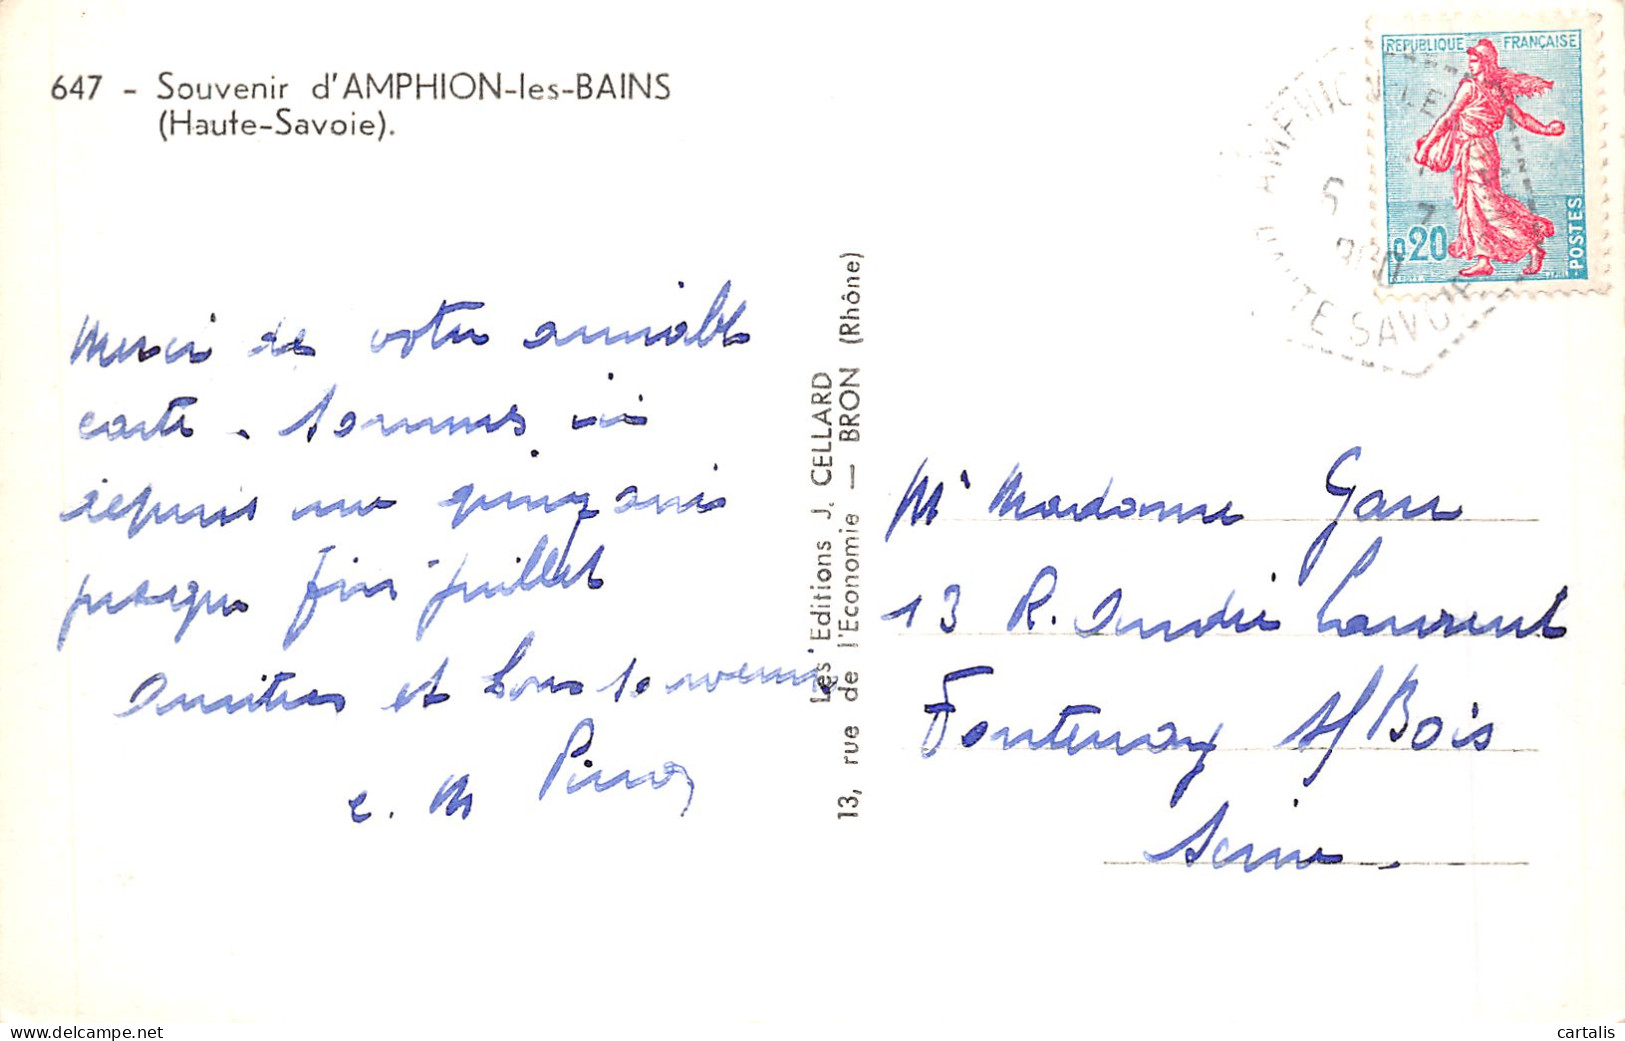 647 - Souvenir d'AMPHION-les-BAINS
(Haute-Savoie).
REPUBLIQUE FRANÇAISE
0,20
POSTES
AMPHION LE
HAUTE SAVOIE
Merci de votre aimable
carte. Sommes ici
depuis une quinzaine
jusque fin juillet
Amitiés et bons souvenirs
C. M
Les Editions J. CELLARD
13, rue de l'Economie — BRON (Rhône)
Mr Madame
13 R. André Laurent
Fontenay s/Bois
Seine.
cartalis